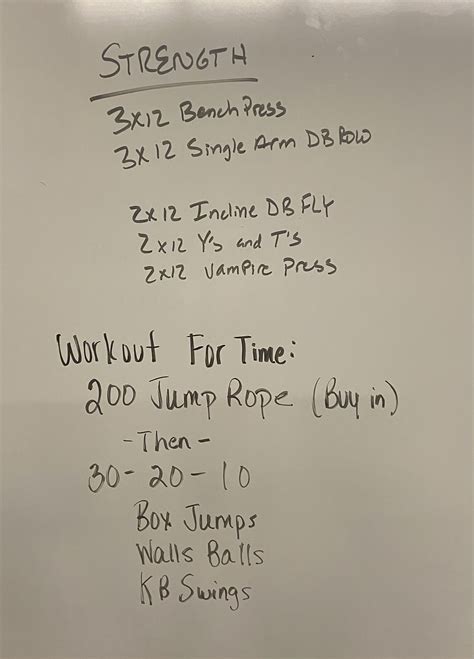 STRENGTH
3x12 Bench Press
3x12 Single Arm DB ROW
2x12 Incline DB FLY
2x12 Y's and T's
2x12 Vampire Press
Workout For Time:
200 Jump Rope (Buy in)
-Then-
30-20-10
Box Jumps
Walls Balls
KB Swings